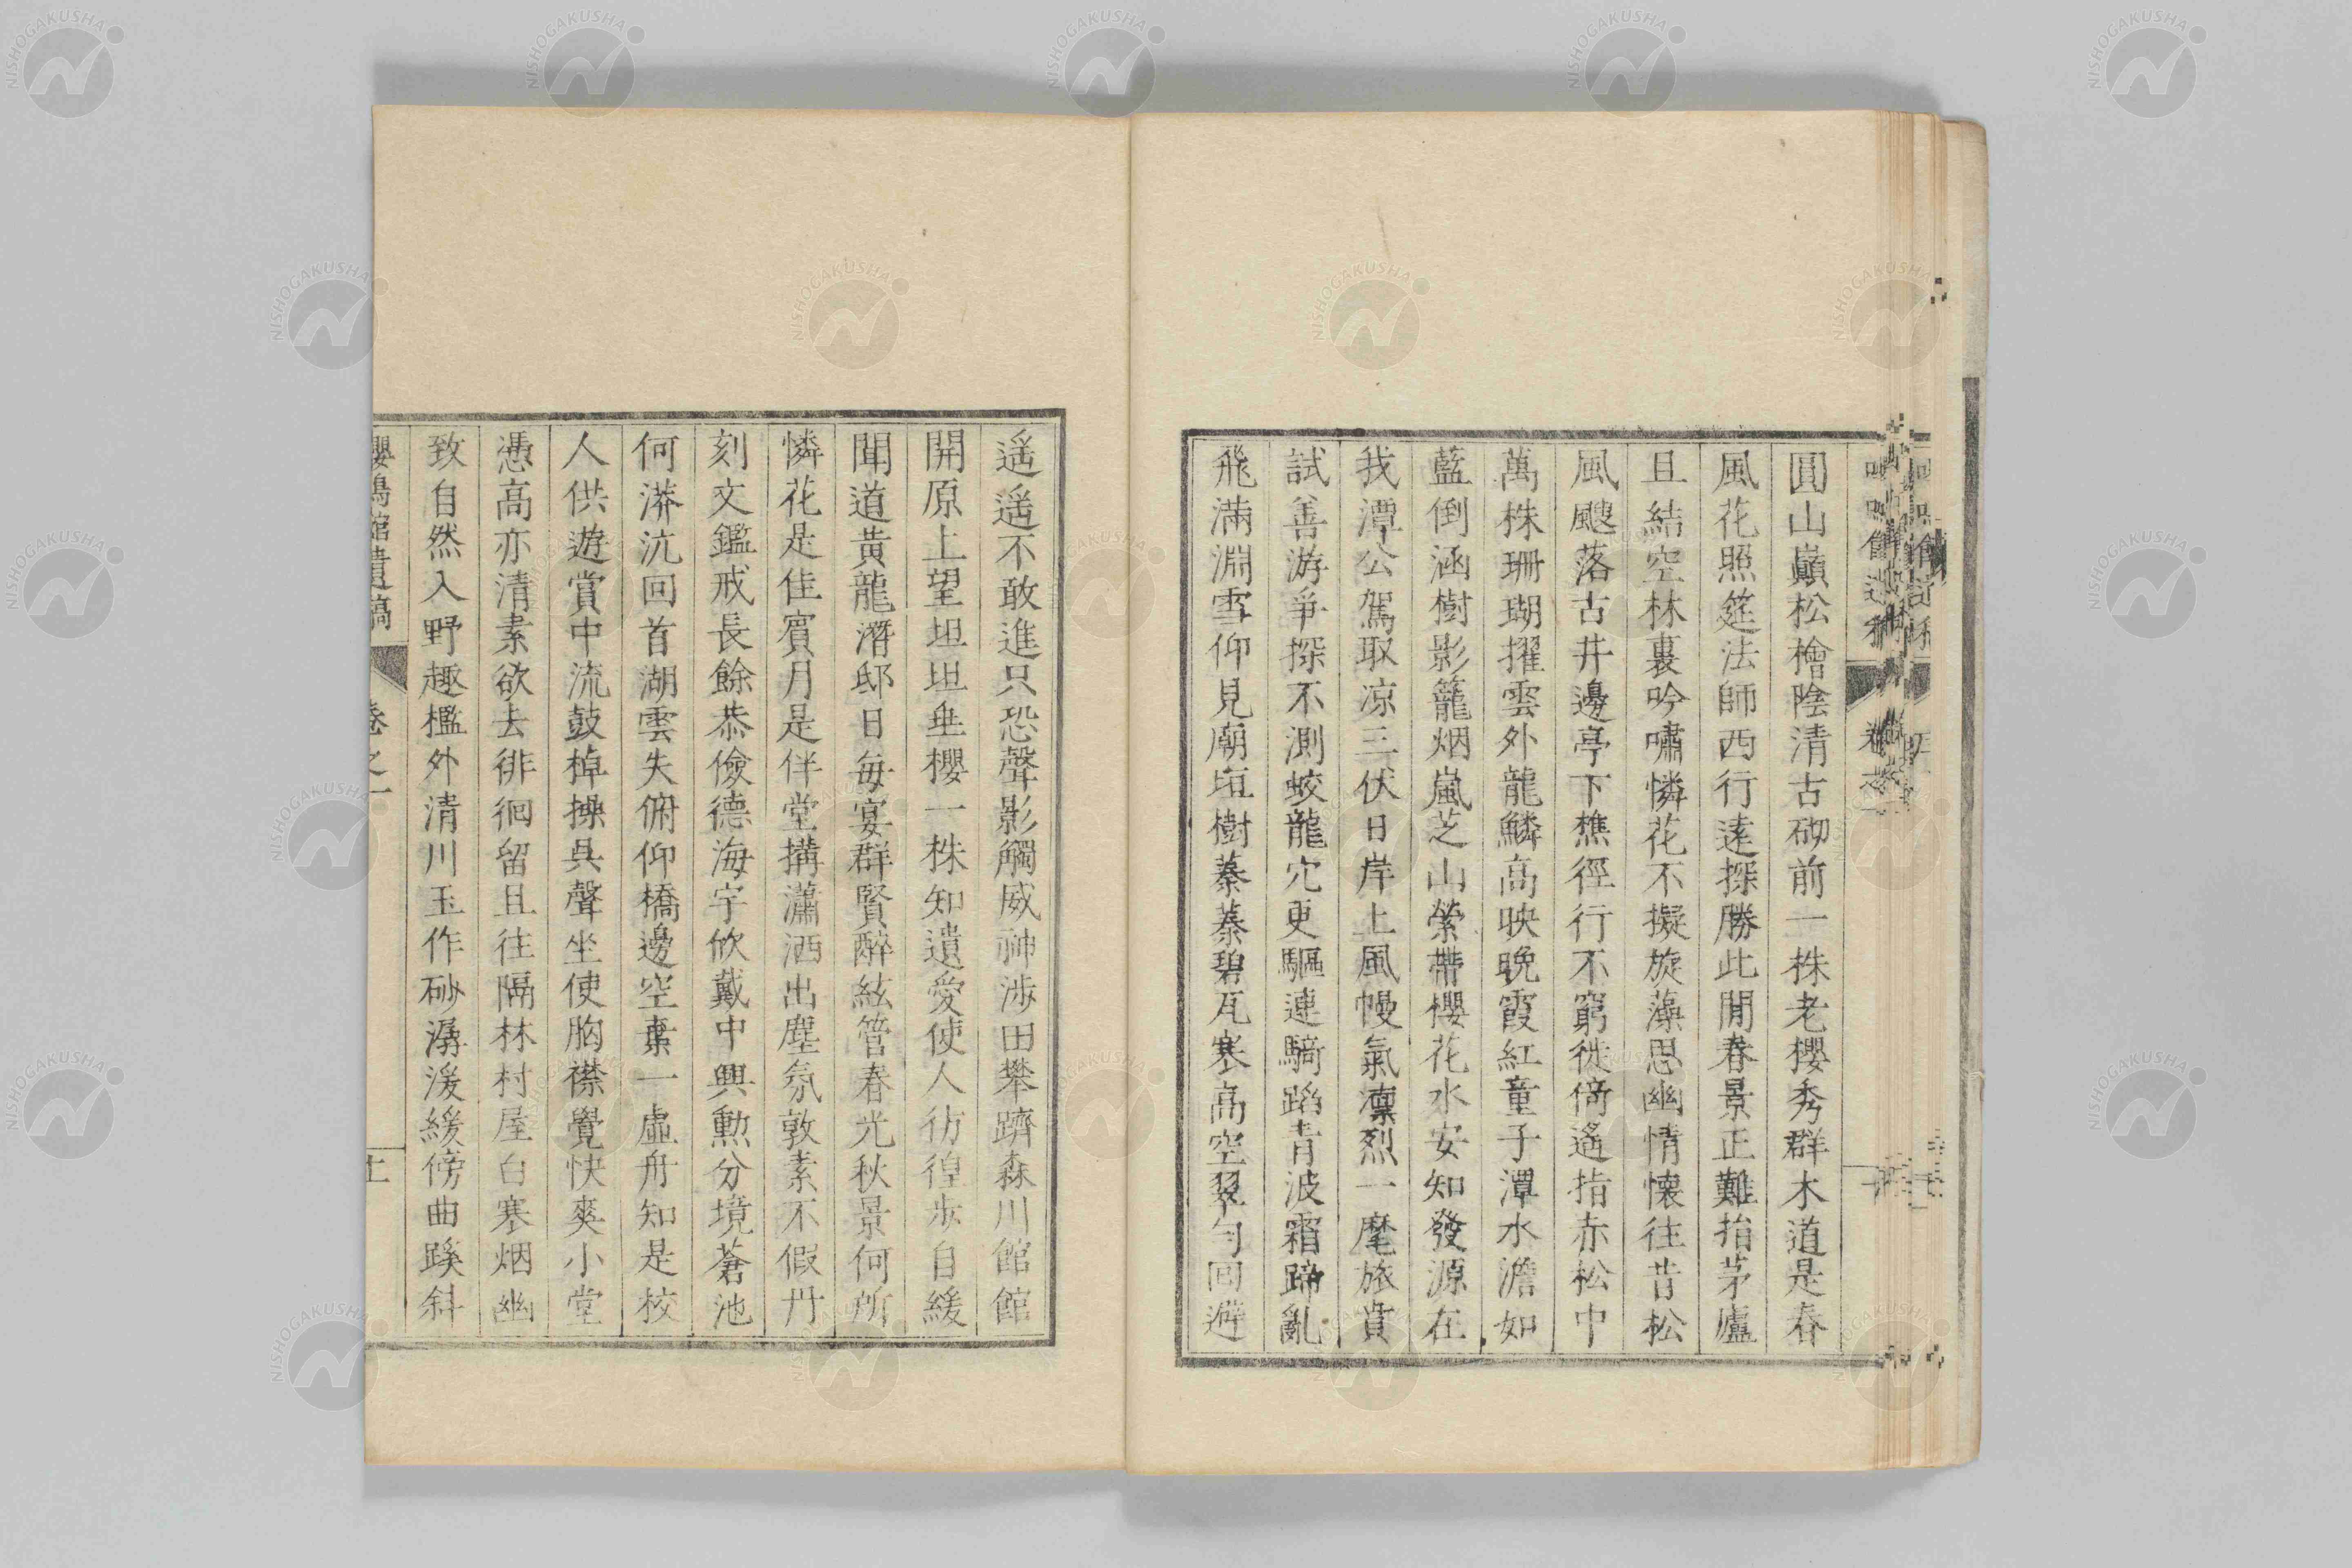 圓山巔松檜陰清古砌前一株老櫻秀群木道是春
風花照筵法師西行遠探勝此閒春景正難指茅廬
且結空林裏吟嘯憐花不擬旋藻思幽情懷往昔松
風颼落古井邊亭下樵徑行不窮徙倚遙指赤松中
萬株珊瑚擢雲外龍鱗高映晚霞紅童子潭水澹如
藍倒涵樹影籠烟嵐芝山縈帶櫻花水安知發源在
我潭公駕取凉三伏日岸上風幔氣凛烈一麾旅賁
試善游爭探不測蛟龍穴更驅連騎蹈青波霜蹄亂
飛滿淵雪仰見廟垣樹蓁蓁碧瓦寒高空翠勻回避
遥遥不敢進只恐聲影觸威神涉田攀躋森川館館
開原上望坦坦垂櫻一株知遺愛使人彷徨步自緩
聞道黄龍潛邸日每宴群賢醉絃管春光秋景何所
憐花是佳賓月是伴堂搆瀟洒出塵氛敦素不假丹
刻文鑑戒長餘恭儉德海宇欣戴中興勲分境蒼池
何漭沆回首湖雲失俯仰橋邊空棄一虛舟知是校
人供遊賞中流鼓棹操吳聲坐使胸襟覺快爽小堂
憑高亦清素欲去徘徊留且往隔林村屋白寒烟幽
致自然入野趣檻外清川玉作砂潺湲緩傍曲蹊斜
櫻鳴館遺稿 卷之一 十一